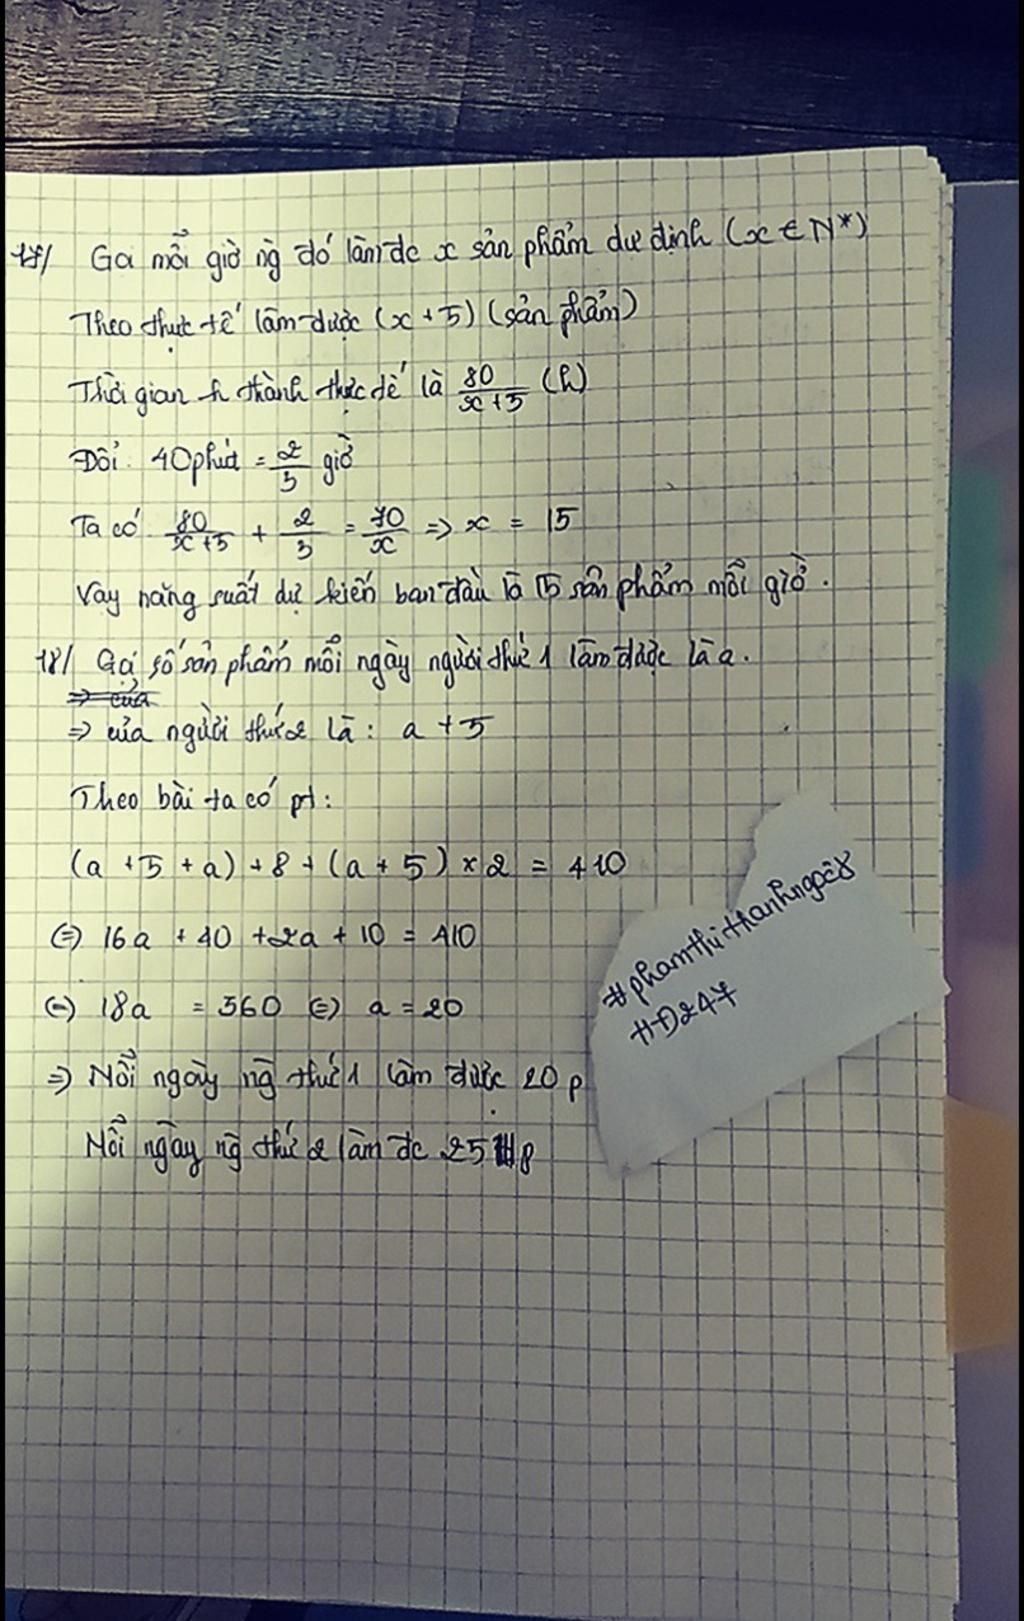 18/ Gọi mỗi giờ ng̀ đó làm đc x sản phẩm dự định (x ∈ N*)
Theo thực tế làm được (x + 5) (sản phẩm)
Thời gian h thành thực tế là 80/x+5 (h)
Đổi: 40 phút = 2/3 giờ
Ta có 80/x+5 + 2/3 = 70/x => x = 15
Vậy năng suất dự kiến ban đầu là 15 sản phẩm mỗi giờ.
18/ Gọi số sản phẩm mỗi ngày người thứ 1 làm được là a.
=> của
=> của người thứ 2 là: a + 5
Theo bài ta có pt:
(a + 5 + a) + 8 + (a + 5) × 2 = 410
(=) 16a + 40 + 2a + 10 = 410
(=) 18a = 360 (=) a = 20
=> Mỗi ngày ng̀ thứ 1 làm được 20 p
Mỗi ngày ng̀ thứ 2 làm đc 25 p
#phamthithanhngoc8
#Đ247